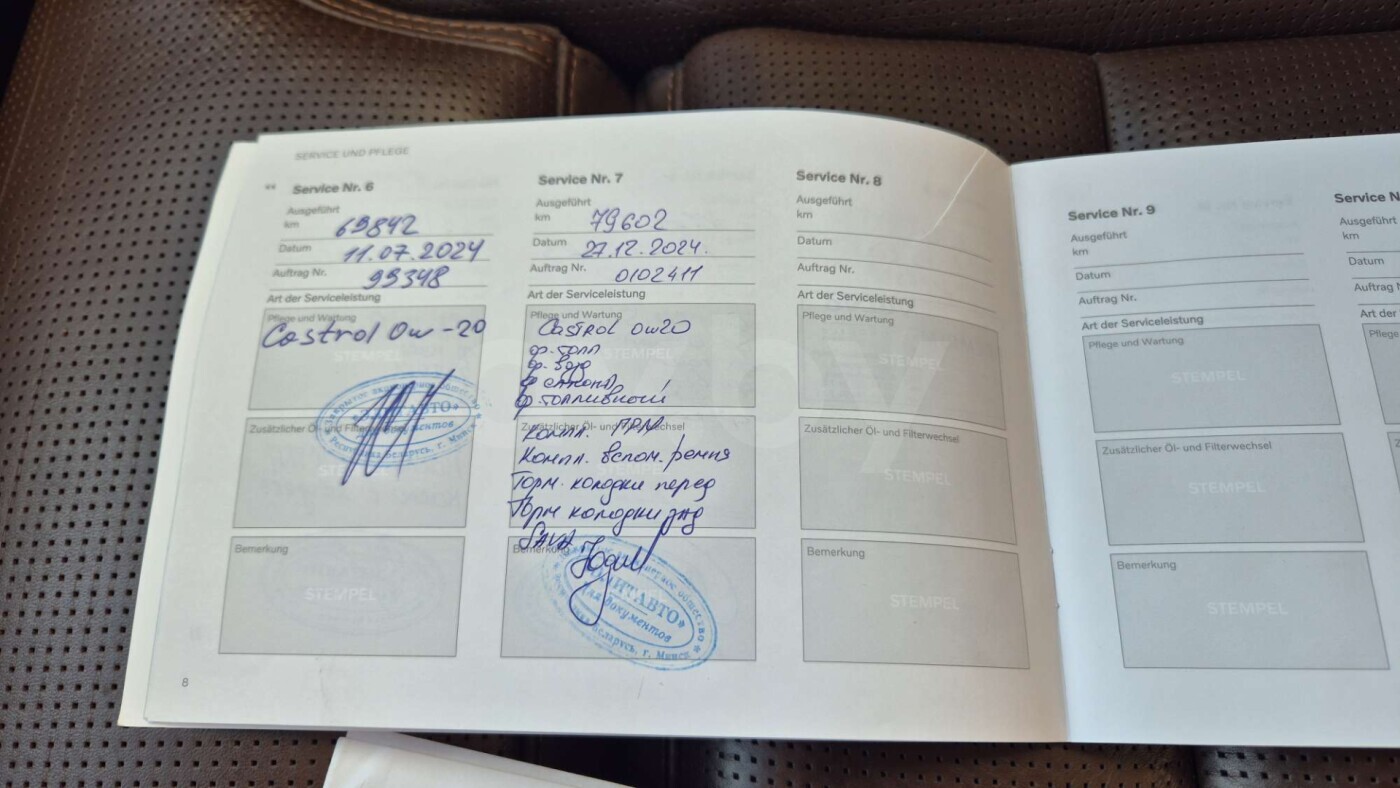 SERVICE UND PFLEGE
Service Nr. 6
Ausgeführt
km 69842
Datum 11.07.2024
Auftrag Nr. 99348
Art der Serviceleistung
Pflege und Wartung
Castrol 0w-20
STEMPEL
«ЮНИТАВТО»
документов
Республика Беларусь, г. Минск
Zusätzlicher Öl- und Filterwechsel
STEMPEL
Bemerkung
STEMPEL
8
Service Nr. 7
Ausgeführt
km 79602
Datum 27.12.2024.
Auftrag Nr. 0102411
Art der Serviceleistung
Pflege und Wartung
Castrol 0w20
STEMPEL
ф. возд
ф салона
ф топливный
Zusätzlicher Öl- und Filterwechsel
компл. ГРМ
компл. вспом. ремня
STEMPEL
Торм. колодки перед
Торм колодки зад
Bemerkung
для документов
Беларусь, г. Минск
Service Nr. 8
Ausgeführt
km
Datum
Auftrag Nr.
Art der Serviceleistung
Pflege und Wartung
STEMPEL
Zusätzlicher Öl- und Filterwechsel
STEMPEL
Bemerkung
STEMPEL
Service Nr. 9
Ausgeführt
km
Datum
Auftrag Nr.
Art der Serviceleistung
Pflege und Wartung
STEMPEL
Zusätzlicher Öl- und Filterwechsel
STEMPEL
Bemerkung
STEMPEL
Service N
Ausgeführt
km
Datum
Auftrag N
Art der
Pflege